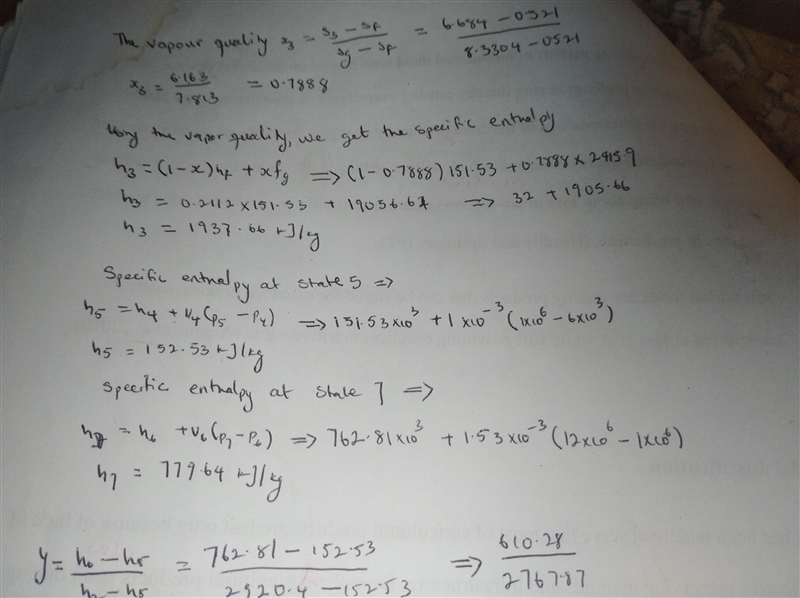 The vapour quality x₃ = (s₃ − sf)/(sg − sf) = (6.684 − 0.521)/(8.3304 − 0521)
x₃ = 6.163/7.813 = 0.7888
Using the vapor quality, we get the specific enthalpy
h₃ = (1 − x)hf + xfg ⟹ (1 − 0.7888) 151.53 + 0.7888 × 2415.9
h₃ = 0.2112 × 151.53 + 19056.64 ⟹ 32 + 1905.66
h₃ = 1937.66 kJ/kg
Specific enthalpy at state 5 ⟹
h₅ = h₄ + v₄(p₅ − p₄) ⟹ 151.53×10³ + 1×10⁻³ (1×10⁶ − 6×10³)
h₅ = 152.53 kJ/kg
Specific enthalpy at state 7 ⟹
h₇ = h₆ + v₆(p₇ − p₆) ⟹ 762.81×10³ + 1.53×10⁻³ (12×10⁶ − 1×10⁶)
h₇ = 779.64 kJ/kg
y = (h₆ − h₅)/(h₂ − h₅) = (762.81 − 152.53)/(2920.4 − 152.53) ⟹ 610.28/2767.87